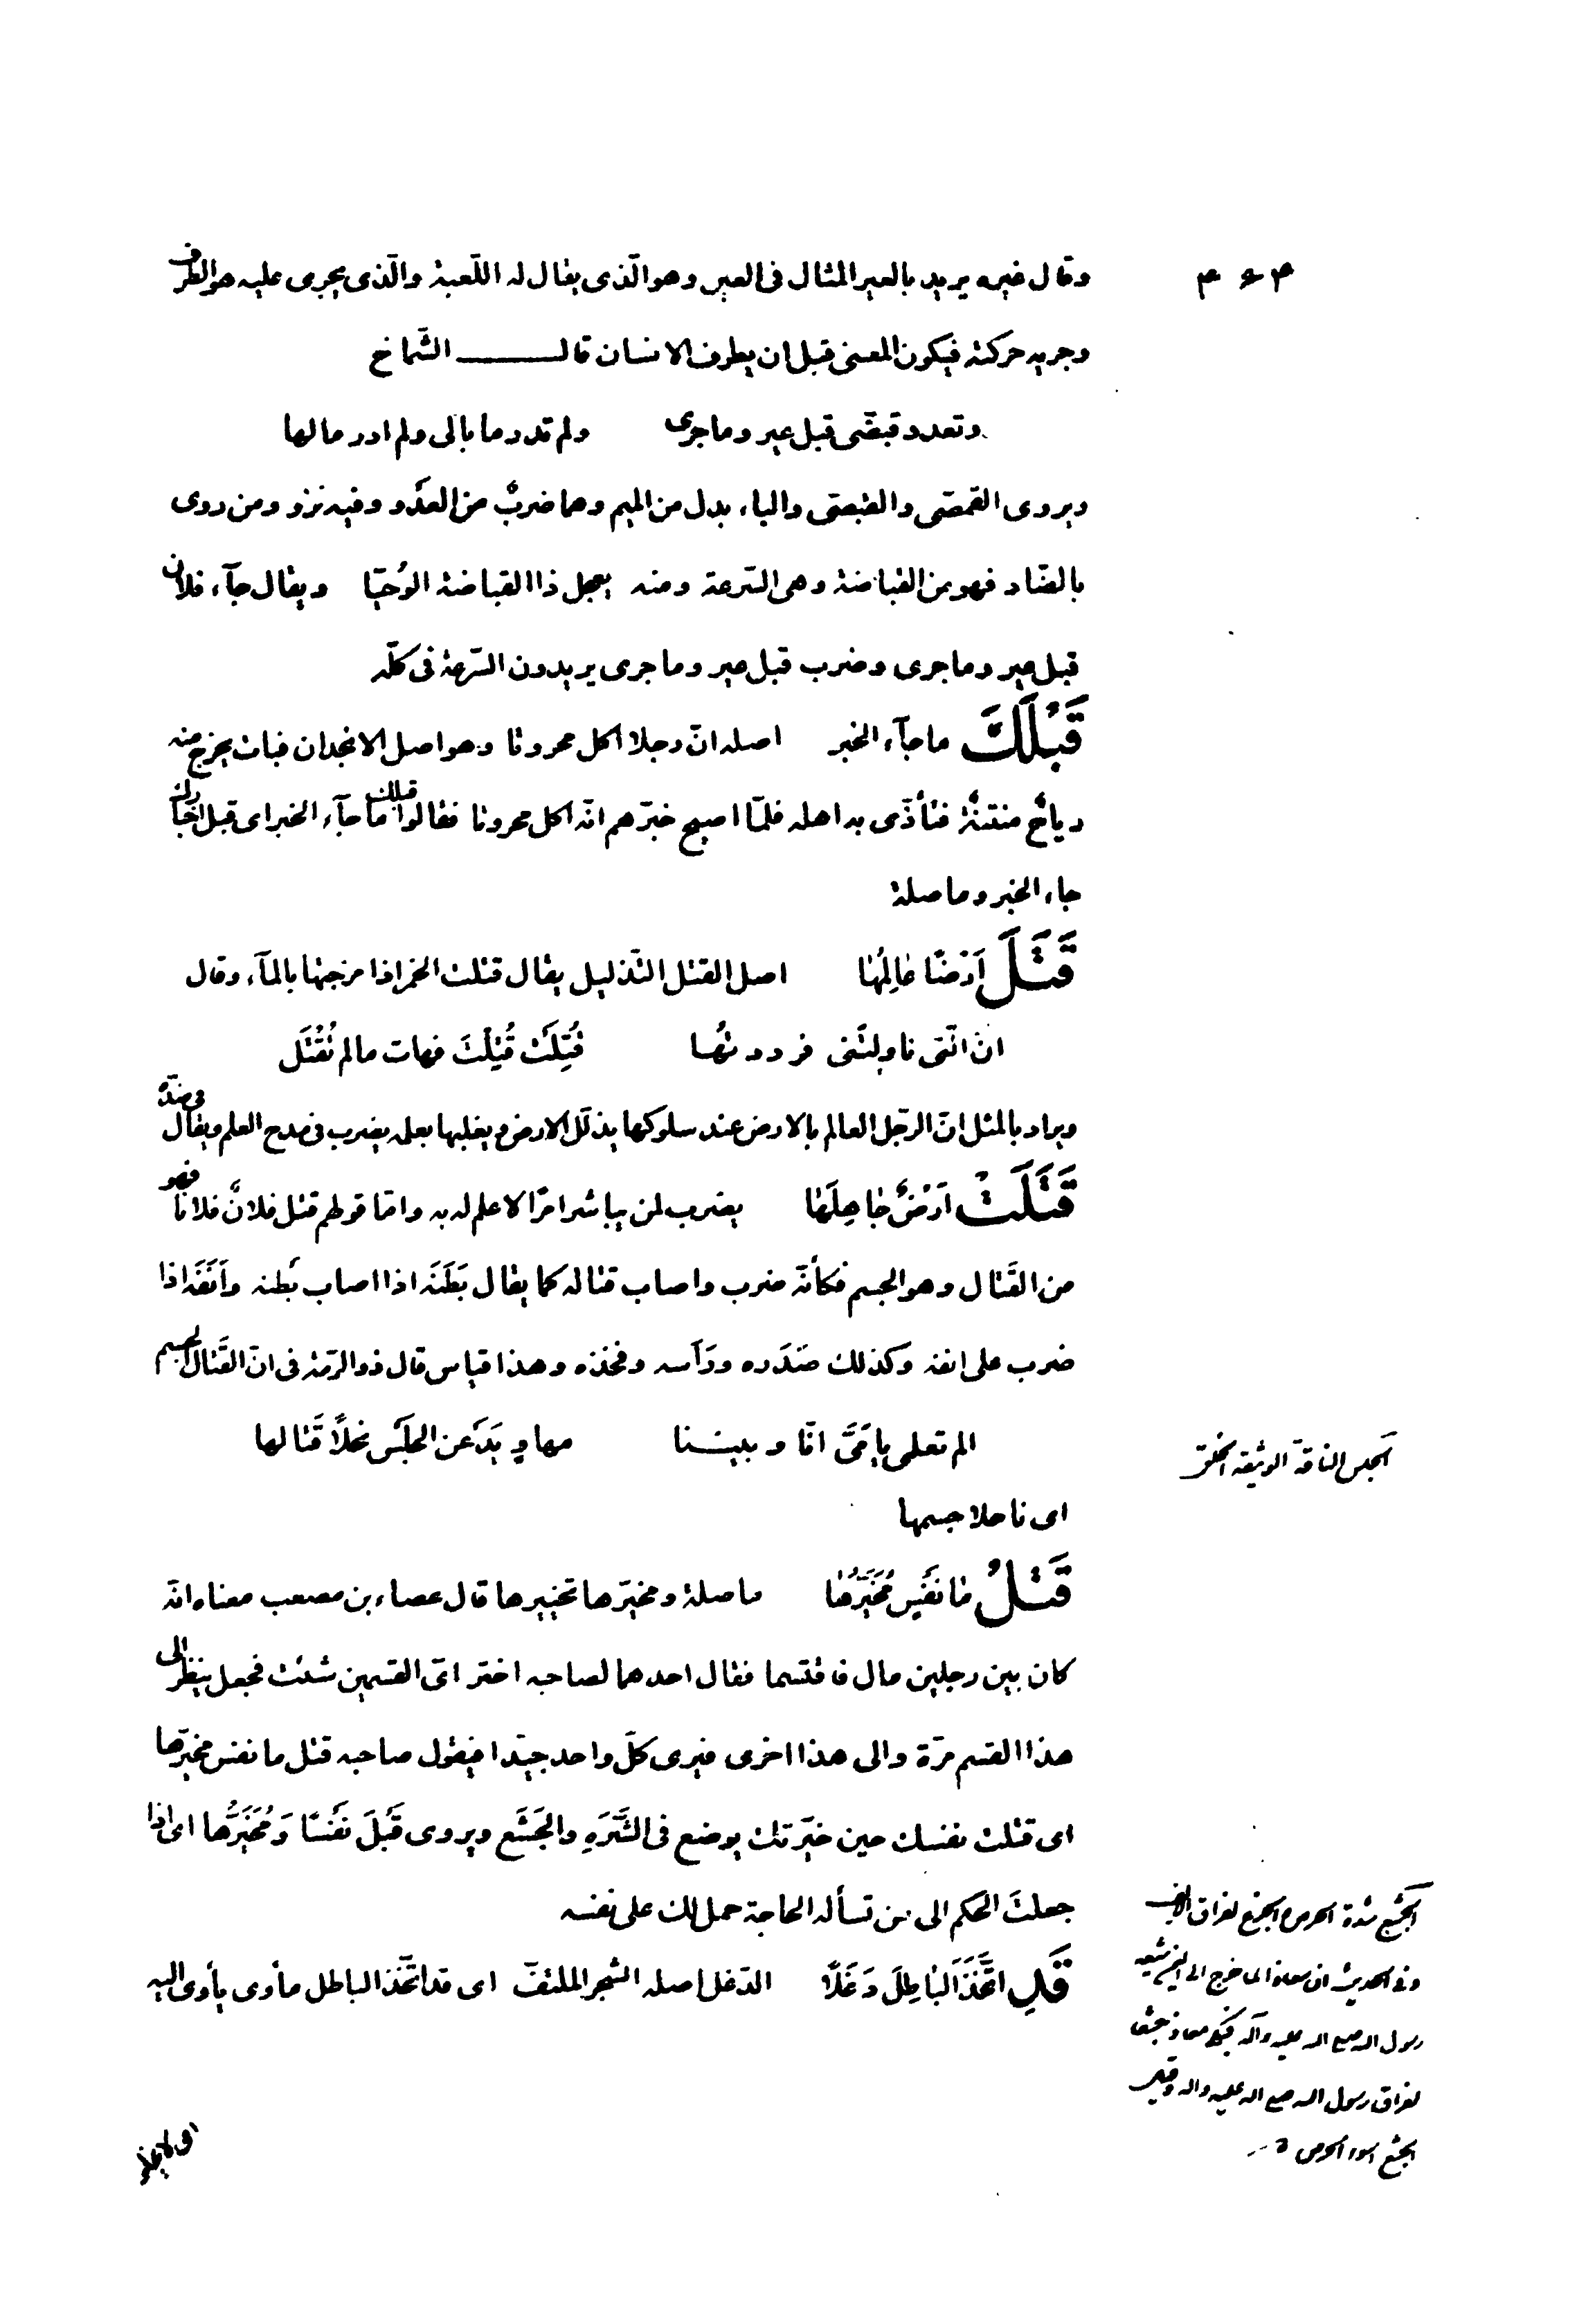 وقال غيره يريد بالعير المثال فى العين وهو الّذى يقال له اللّعبة والّذى يجرى عليه هو الطرف
وجريه حركته فيكون المعنى قبل ان يطرف الانسان قال الشّماخ
وتعدد قبضّى قبل عير وما جرى ولم تدر ما بالى ولم ادر ما لها
ويروى القمصّى والقبصّى والباء بدل من الميم وهما ضربٌ من العدَو وفيه نزو ومن روى
بالضّاد فهو من القباضة وهى السّرعة ومنه يعجل ذا القباضة الوُحيّا ويقال جآء فلان
قبل عير وما جرى وضرب قبل عير وما جرى يريدون السّرعة فى كلّه
قَبْلَكَ ما جآء الخبر اصله انّ رجلا اكل محروثا وهو اصل الانجدان فبات يخرج منه
رياحٌ منتنةٌ فتأذّى به اهله فلمّا اصبح خبّرهم انّه اكل محروثا فقالوا قبلك ما جآء الخبر اى قبل اخبارك
جاء الخبر وما صلة
قَتَلَ اَرْضًا عٰالِمُهٰا اصل القتل التّذليل يقال قتلت الخمر اذا مزجتها بالمآء وقال
انّ الّتى ناولتنى فرددتُها قُتِلَتْ قُتِلْتَ فهات ما لم تُقْتَل
ويراد بالمثل انّ الرّجل العالم بالارض عند سلوكها يذلّل الارض ويغلبها بعلمه يضرب فى مدح العلم ويقال فى ضدّه
قَتَلَتْ اَرْضٌ جٰاهِلَهٰا يضرب لمن يباشر امرًا لا علم له به وامّا قولهم قتل فلانٌ فلانًا فهو
من القَتال وهو الجسم فكأنّه ضرب واصاب قتاله كما يقال بَطَنَه اذا اصاب بَطنه واَنَفَه اذا
ضرب على انفه وكذلك صَدَره ورَأسه وفخذه وهذا قياس قال ذو الرّمّة فى انّ القَتال الجسم
الم تعلمى يا مَىَّ انّا وبيننا مهاوٍ يَدَعن الجَلْسَ نحلًا قَتالها
الجلس الناقة الوثيقة الخلق
اى ناحلا جسمها
قَتْلُ مٰا نَفْسٍ مُخَيِّرُهٰا ما صلة ومخيّرها تخييرها قال عصاء بن مصعب معناه انّه
كان بين رجلين مال فاقتسما فقال احدهما لصاحبه اختر اىّ القسمين شئت فجعل ينظر الى
هذا القسم مرّة والى هذا اخرى فيرى كلّ واحد جيّدا فيقول صاحبه قتل ما نفس مخيّرها
اى قتلت نفسك حين خيّرتك يوضع فى الشَّرَهِ والجَشَع ويروى قَبْلَ نَفْسًا وَمُخَيَّرُها اى اذا
جعلتَ الحكم الى من تسأله الحاجة حمل لك على نفسه
قَدِ اتَّخَذَ الْبٰاطِلَ دَغَلًا الدّغل اصله الشجر الملتفّ اى قد اتّخذ الباطل مأوى يأوى اليه
الجشع شدة الحرص والجزع لفراق الالف
وفى الحديث ان معاذا لما خرج الى اليمن شيعه
رسول الله صلى الله عليه وآله فبكى معاذ جشعا
لفراق رسول الله صلى الله عليه واله وقيل
الجشع اسوء الحرص